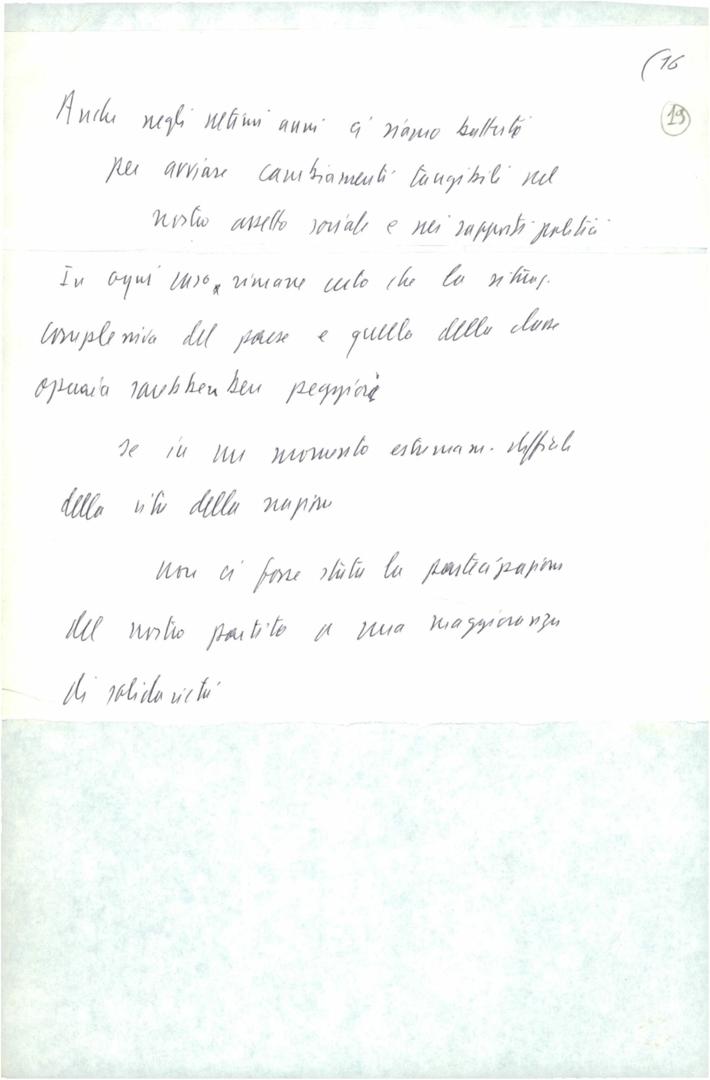 (16
19
Anche negli ultimi anni ci siamo battuti
per avviare cambiamenti tangibili nel
nostro assetto sociale e nei rapporti politici
In ogni caso, rimane certo che la situaz.
complessiva del paese e quella della classe
operaia sarebbero ben peggiori
se in un momento estremam. difficile
della vita della nazione
non ci fosse stata la partecipazione
del nostro partito a una maggioranza
di solidarietà